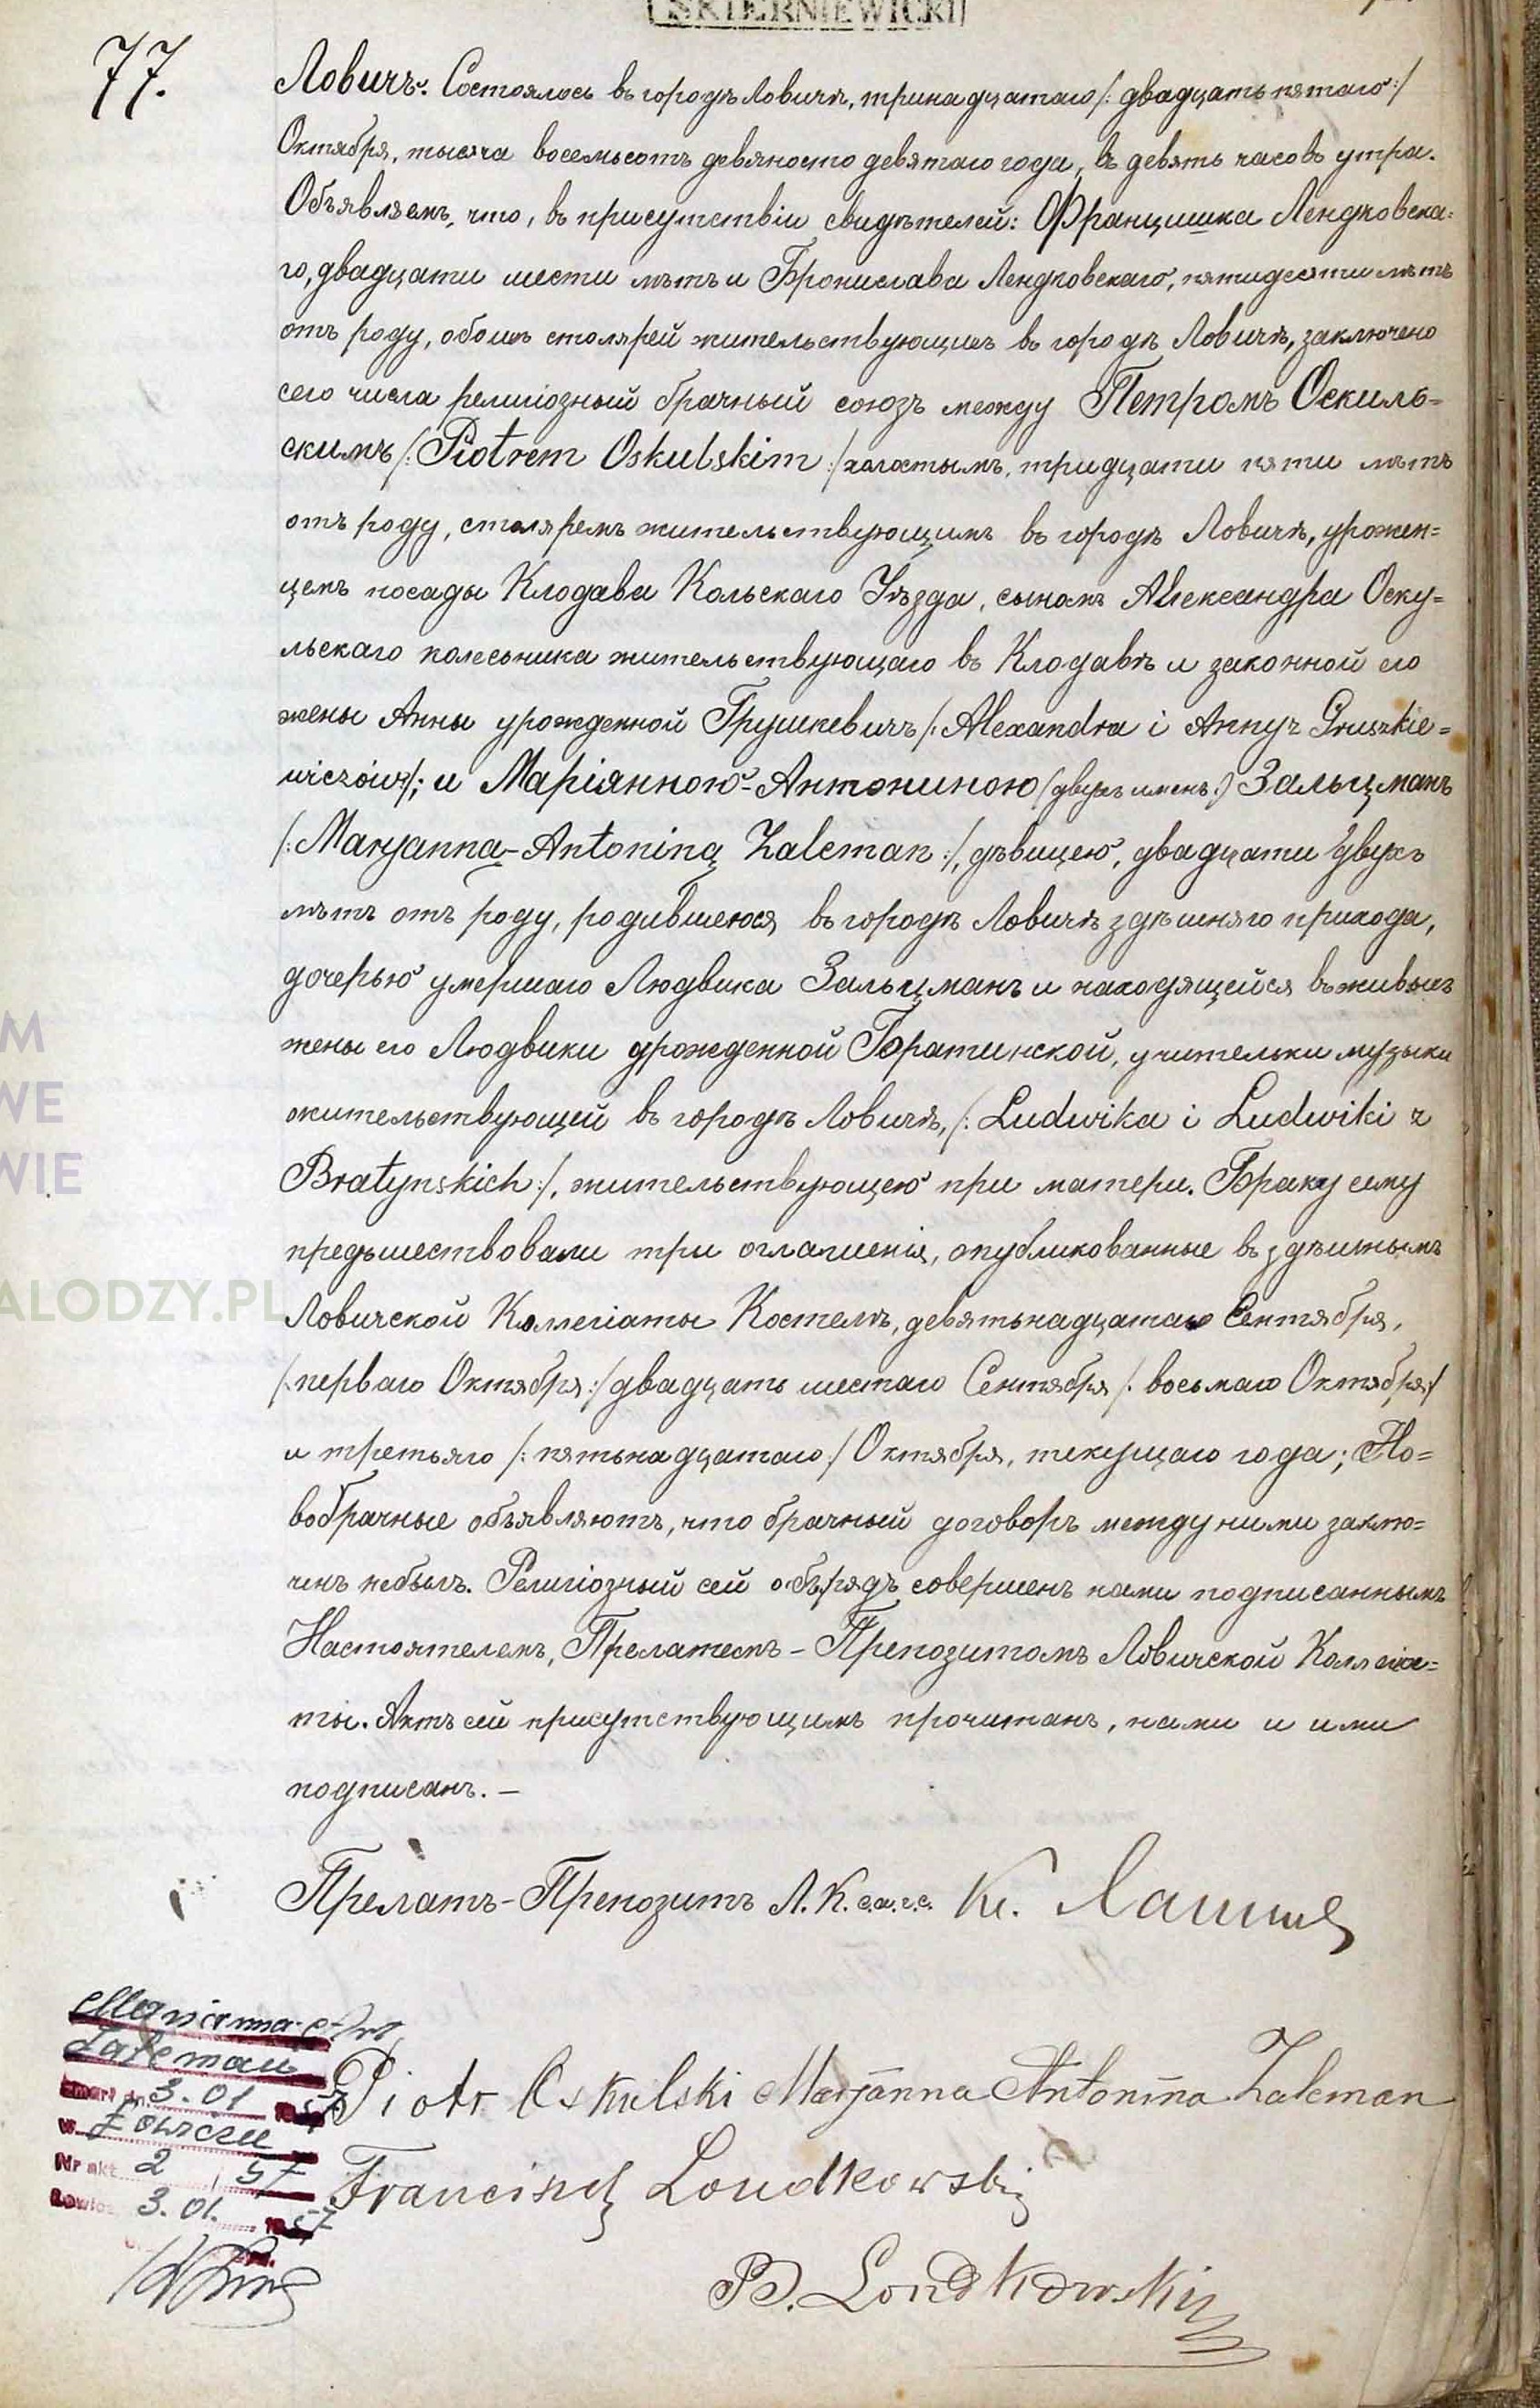 SKIERNIEWICKI
77.
Ловичъ. Состоялось въ городѣ Ловичѣ, тринадцатаго /: двадцать пятаго :/
Октября, тысяча восемьсотъ девяносто девятаго года, въ девять часовъ утра.
Объявляемъ, что, въ присутствіи свидѣтелей: Францишка Лендковска=
го, двадцати шести лѣтъ и Бронислава Лендковскаго, пятидесяти лѣтъ
отъ роду, обоихъ столярей жительствующихъ въ городѣ Ловичѣ, заключено
сего числа религіозный брачный союзъ между Петромъ Оскиль=
скимъ /: Piotrem Oskulskim :/ холостымъ, тридцати пяти лѣтъ
отъ роду, столяремъ жительствующимъ въ городѣ Ловичѣ, урожен=
цемъ посады Клодава Кольскаго Уѣзда, сыномъ Александра Оску=
льскаго колесьника жительствующаго въ Клодавѣ и законной его
жены Анны урожденной Грушкевичъ /: Alexandra i Anny z Gruszkie=
wiczów :/; и Маріянною-Антониною /: двухъ именъ :/ Зальцманъ
/: Maryanną-Antoniną Zalcman :/, дѣвицею, двадцати двухъ
лѣтъ отъ роду, родившеюся въ городѣ Ловичѣ здѣшняго прихода,
дочерью умершаго Людвика Зальцманъ и находящейся въ живыхъ
жены его Людвики урожденной Братинской, учительки музыки
жительствующей въ городѣ Ловичѣ, /: Ludwika i Ludwiki z
Bratynskich :/, жительствующею при матери. Браку сему
предшествовали три оглашенія, опубликованные въ здѣшнымъ
Ловичской Коллегіаты Костелѣ, девятьнадцатаго Сентября,
/: перваго Октября :/ двадцать шестаго Сентября /: восьмаго Октября :/
и третьяго /: пятьнадцатаго :/ Октября, текущаго года; Но=
вобрачные объявляютъ, что брачный договоръ между ними заклю=
ченъ небылъ. Религіозный сей обърядъ совершенъ нами подписаннымъ
Настоятелемъ, Прелатемъ - Препозитомъ Ловичской Коллегіа=
ты. Актъ сей присутствующимъ прочитанъ, нами и ими
подписанъ. —
Прелатъ-Препозитъ Л. К. с.а.г.с. Кс.
Piotr Oskulski Marjanna Antonina Zalcman
Francisz Londkowski
B. Londkowski
Marianna Ant
Zalcman
zmarł dn. 3.01 1957
w Łowiczu
Nr akt 2 / 57
Łowicz 3.01. 1957
M
WE
WIE
ALODZY.PL